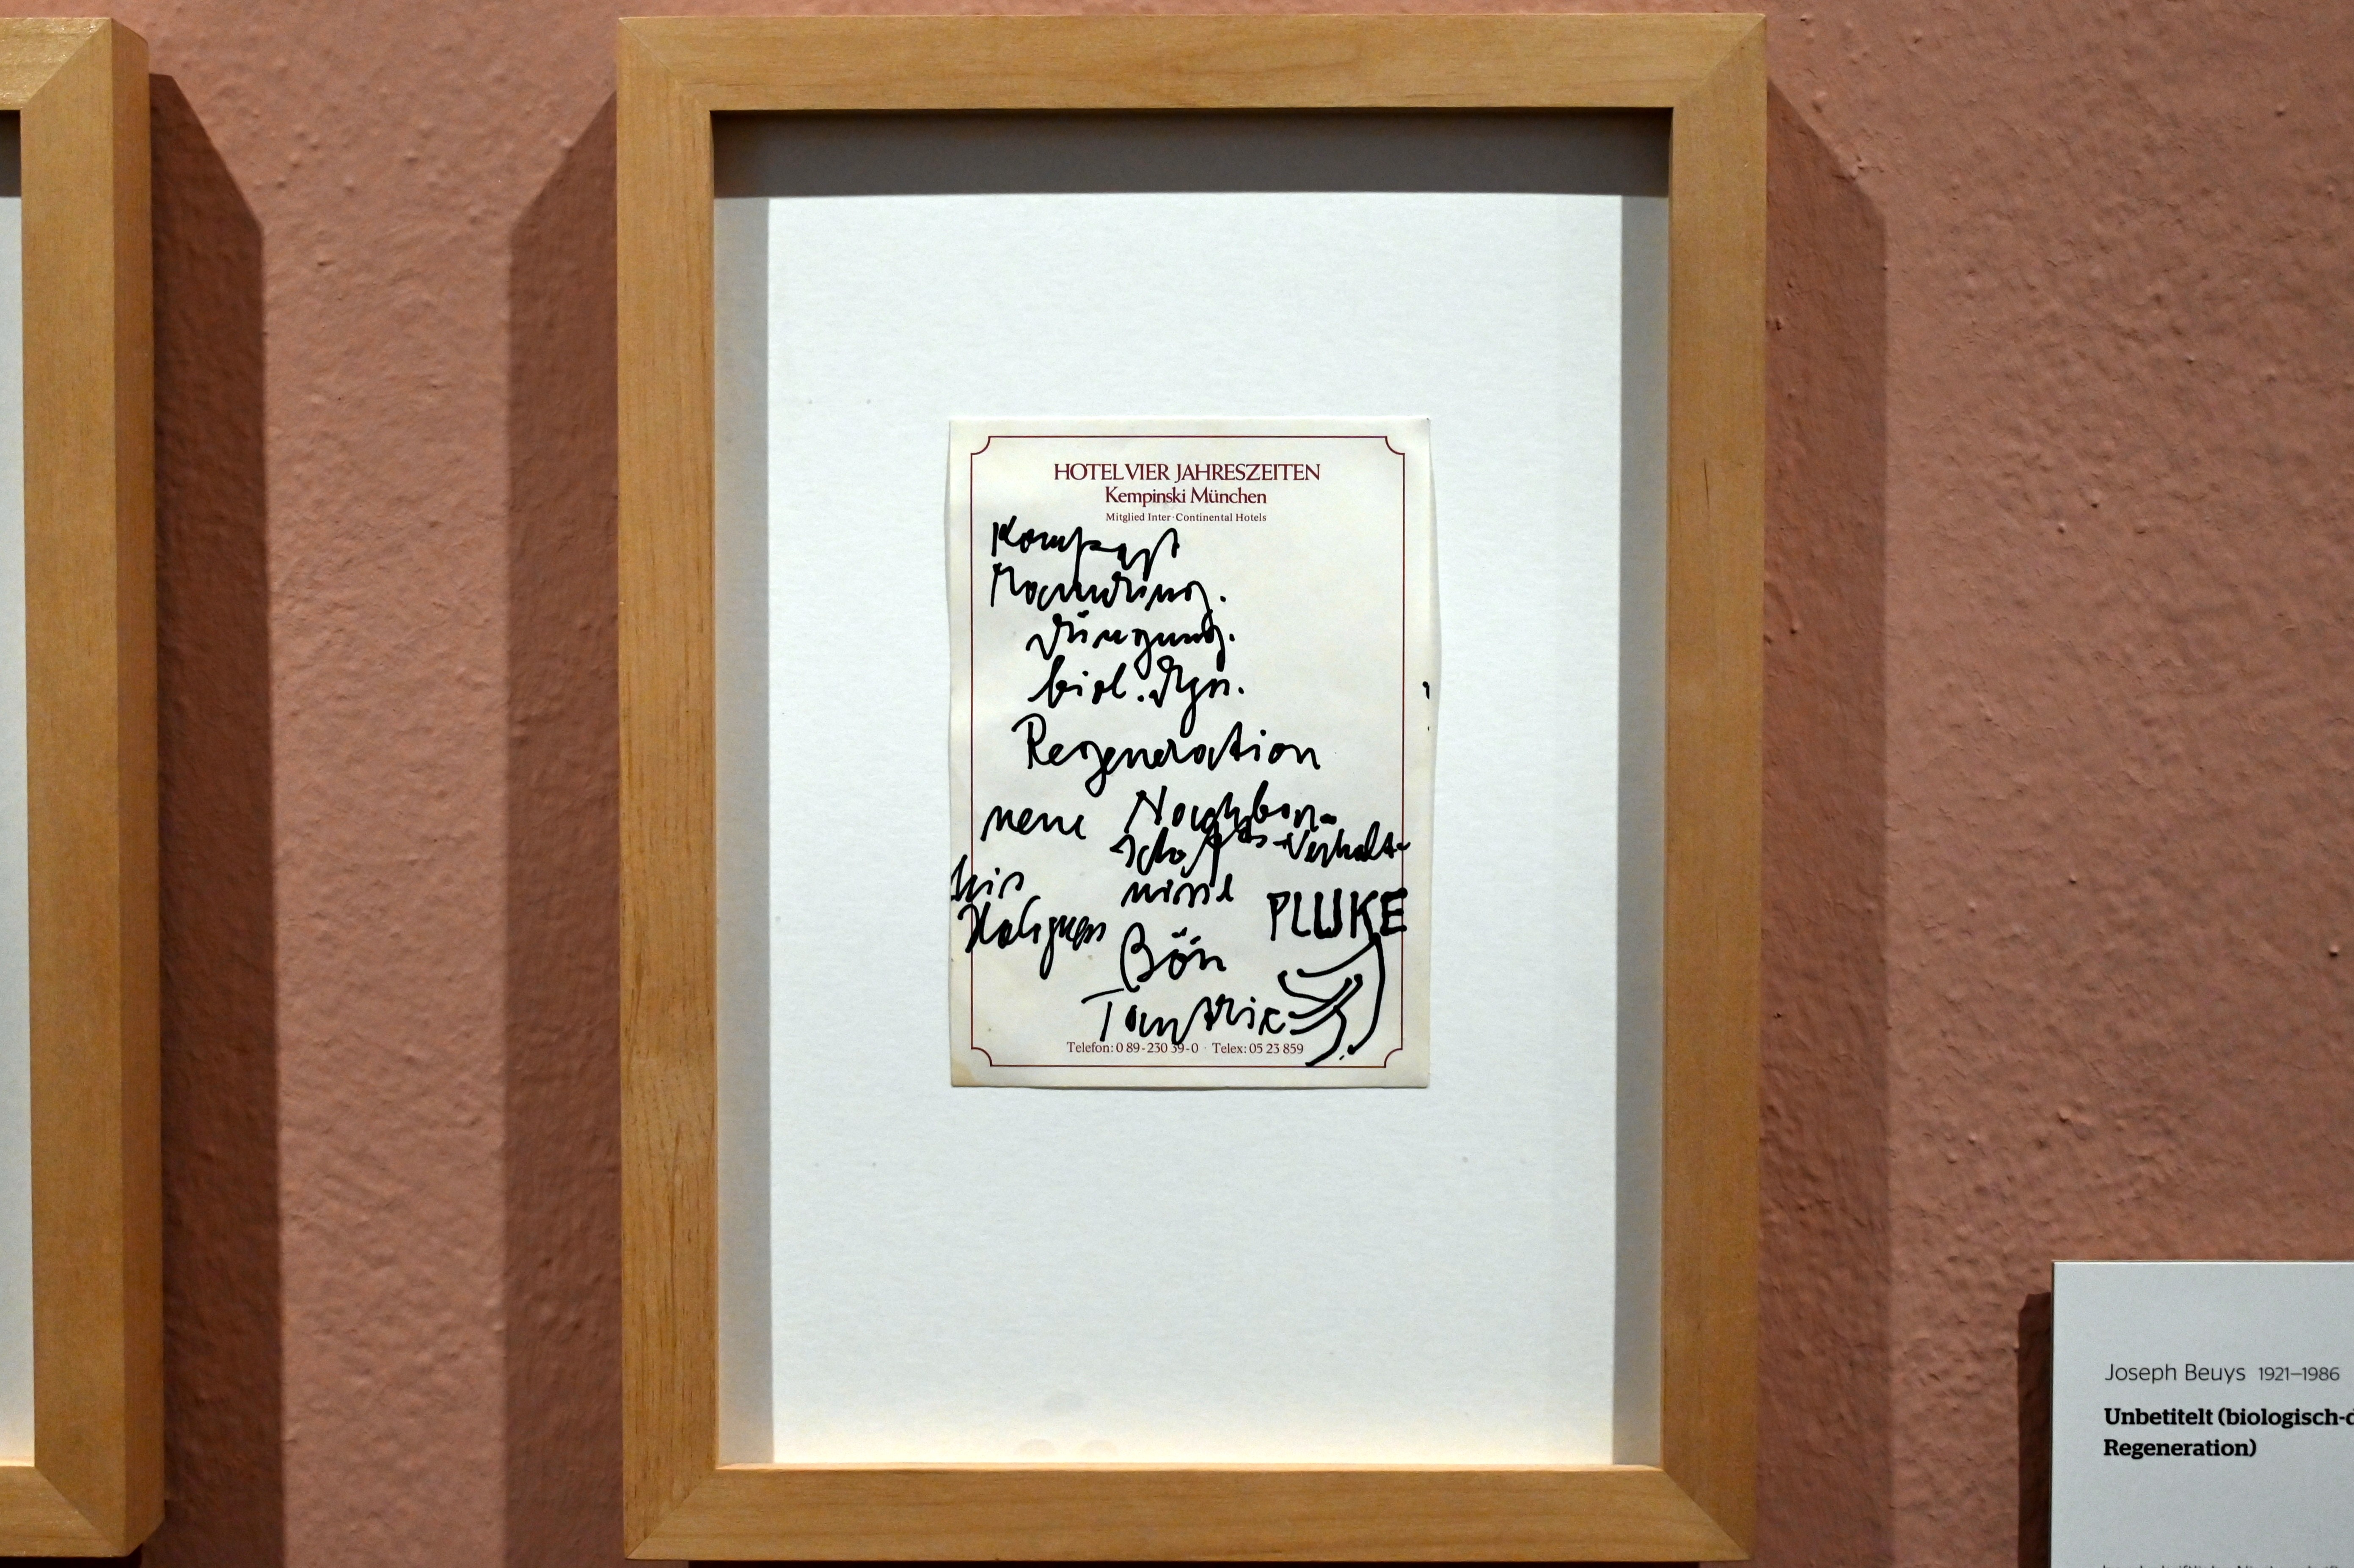 HOTEL VIER JAHRESZEITEN
Kempinski München
Mitglied Inter-Continental Hotels
Kompost
Düngung.
biol. Dyn.
Regeneration
neue Nachbar-
schafts-Verhält-
nisse
PLUKE
Bön
Tantric
Telefon: 0 89-230 39-0 · Telex: 05 23 859
Joseph Beuys 1921–1986
Unbetitelt (biologisch-d
Regeneration)